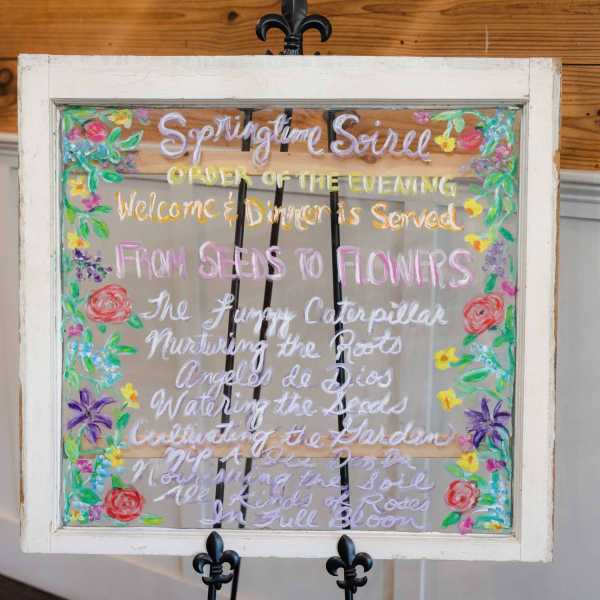 Springtime Soiree
ORDER OF THE EVENING
Welcome & Dinner is Served
FROM SEEDS TO FLOWERS
The Funny Caterpillar
Nurturing the Roots
Angeles de Dios
Watering the Seeds
Cultivating the Garden
Nip A
Nourishing the Soil
All Kinds of Roses
In Full Bloom